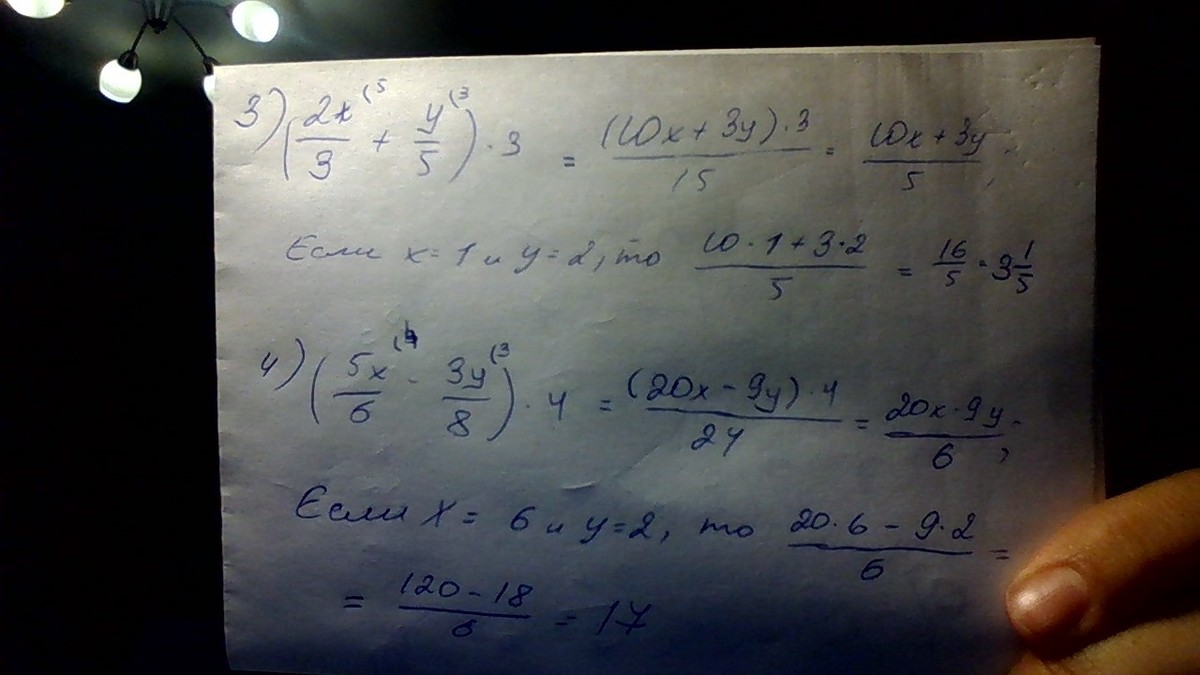 3) (2x/3 (5 + y/5 (3) · 3 = (10x + 3y) · 3 / 15 = 10x + 3y / 5 ;
Если x = 1 и y = 2, то 10 · 1 + 3 · 2 / 5 = 16/5 = 3 1/5
4) (5x/6 (4 - 3y/8 (3) · 4 = (20x - 9y) · 4 / 24 = 20x - 9y / 6 ;
Если x = 6 и y = 2, то 20 · 6 - 9 · 2 / 6 =
= 120 - 18 / 6 = 17